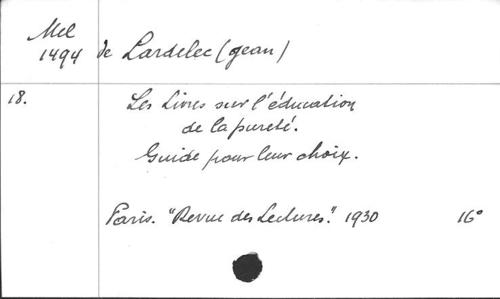 Mel
1494 de Lardelec (Jean)
18. Les Livres sur l'éducation
de la pureté.
Guide pour leur choix.
Paris. "Revue des Lectures". 1930 16°